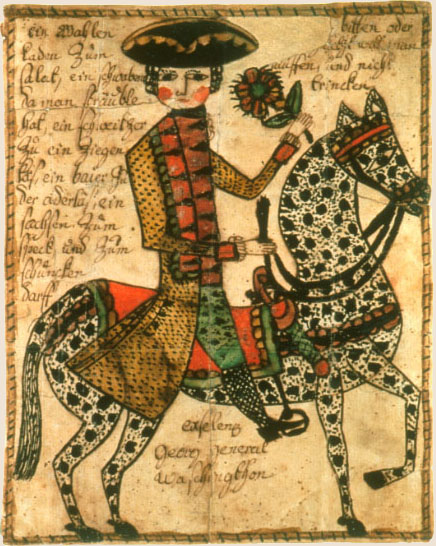 ein Wahlen
laden Zum
salat, ein schwaben
da man sträuble
hat, ein schweitzer
Zu ein Ziegen
kes, ein baier Zu
der aderlaß, ein
sachsen Zum
speck, und Zum
schüncken
darff
bitten oder
nicht weil man
nuffen, und nicht
trincken
exselenz
Georg General
Waschingthon